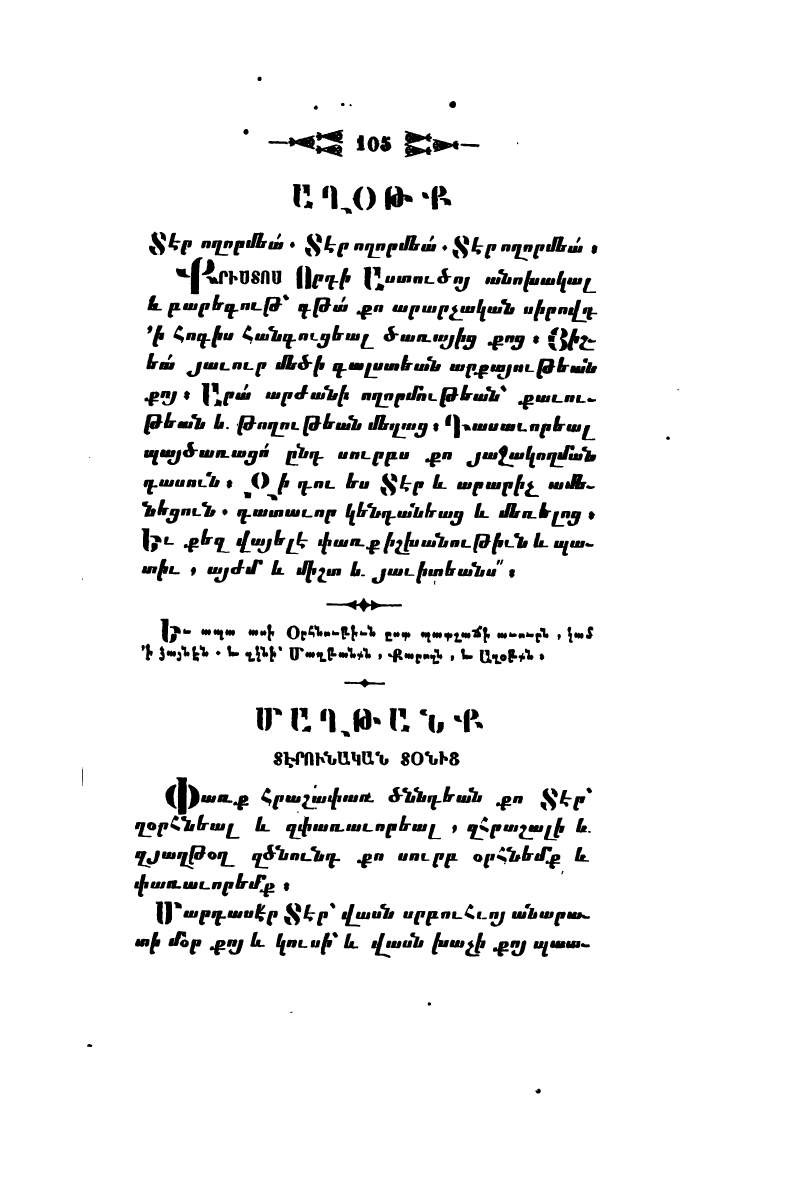 105
ԱՂՕԹՔ
Տէր ողորմեա՛. Տէր ողորմեա՛. Տէր ողորմեա՛։
ՔՐԻՍՏՈՍ Որդի Աստուծոյ անոխակալ
և բարեգութ՝ գթա՛ քո արարչական սիրովդ
՚ի հոգիս հանգուցեալ ծառայից քոց։ Յիշ-
եա՛ յաւուր մեծի գալստեան արքայութեան
քոյ։ Արա՛ արժանի ողորմութեան՝ քաւու-
թեան և թողութեան մեղաց։ Դասաւորեալ
պայծառացո՛ ընդ սուրբս քո յաջակողման
դասուն։ Զի դու ես Տէր և արարիչ ամե-
նեցուն. դատաւոր կենդանեաց և մեռելոց։
Եւ քեզ վայելէ փառք իշխանութիւն և պա-
տիւ, այժմ և միշտ և յաւիտեանս՞։
Եւ ապա ասի Օրհնութիւն ըստ պատշաճի աւուրն, կամ
՚ի ձայնէն. և զկնի՝ Մաղթանքն, Քարոզն, և Աղօթքն։
ՄԱՂԹԱՆՔ
ՏԷՐՈՒՆԱԿԱՆ ՏՕՆԻՑ
Փառք հրաշափառ ծննդեան քո Տէր՝
զօրհնեալ և զփառաւորեալ, զհրաշալի և
զյաղթօղ զծնունդ քո սուրբ օրհնեմք և
փառաւորեմք։
Մարդասէր Տէր՝ վասն սրբուհւոյ անարա-
տի մօր քոյ և կուսի՝ և վասն խաչի քոյ պատ-